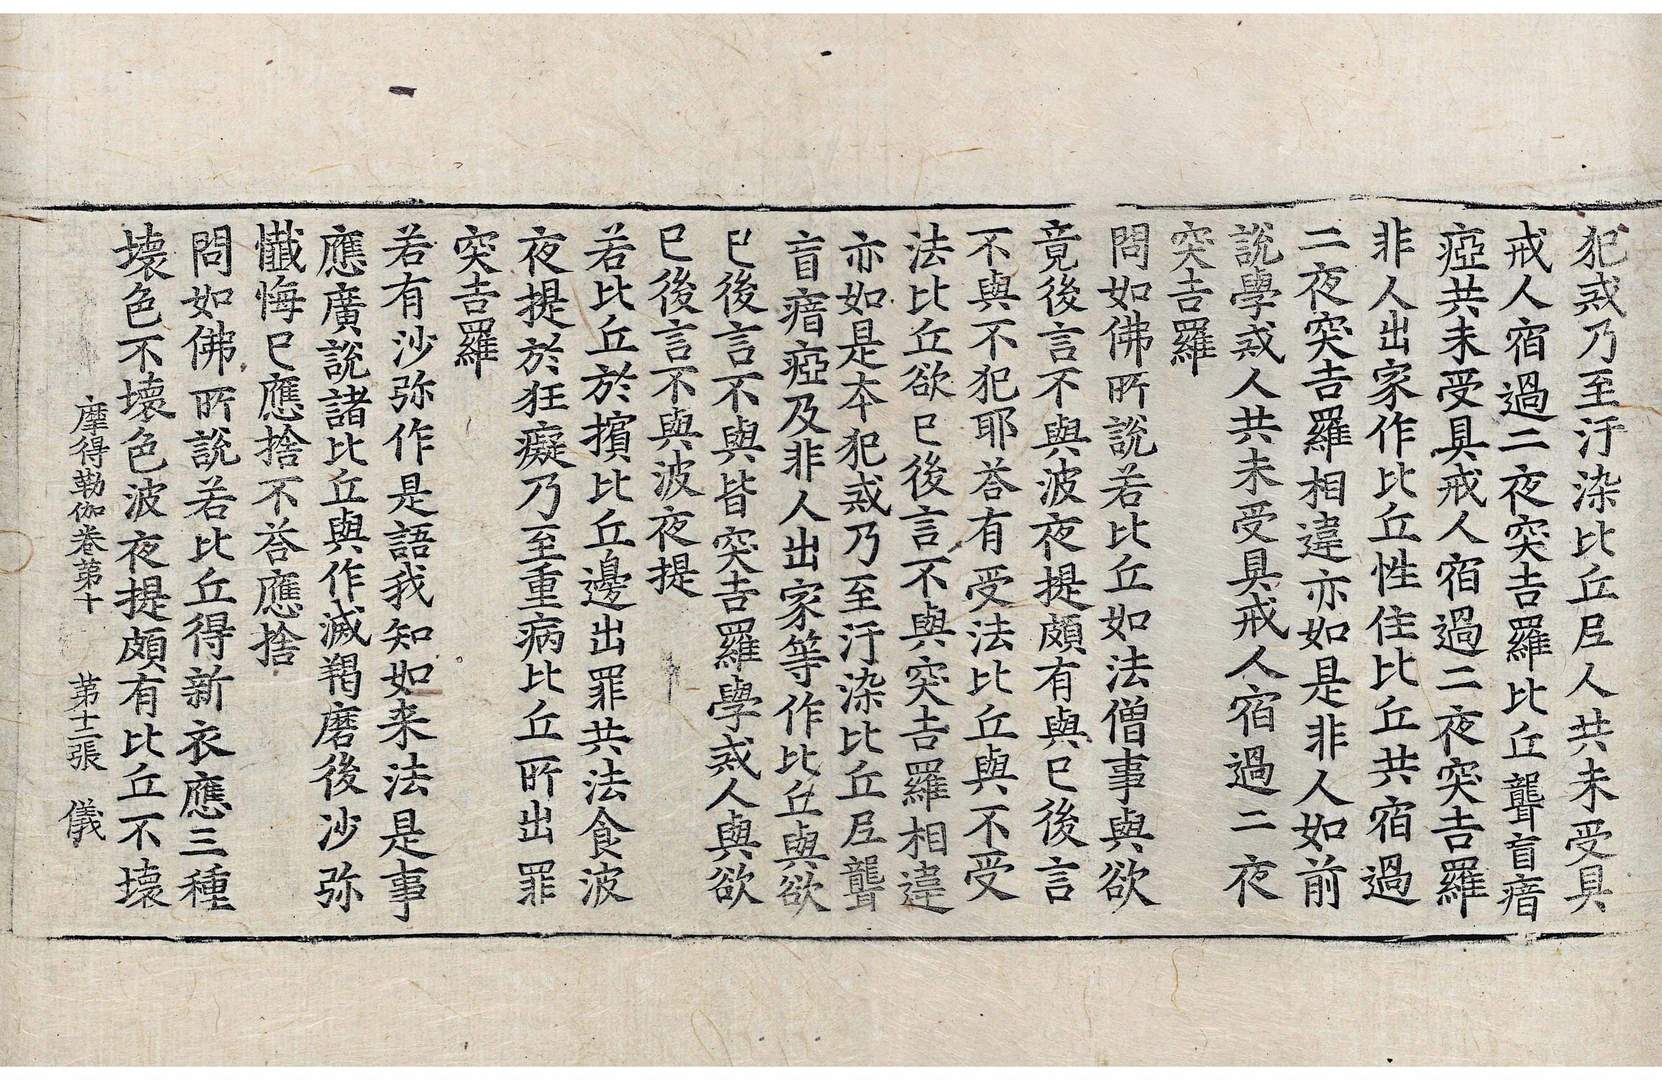 犯戒乃至汙染比丘尼人共未受具
戒人宿過二夜突吉羅比丘聾盲瘖
瘂共未受具戒人宿過二夜突吉羅
非人出家作比丘性住比丘共宿過
二夜突吉羅相違亦如是非人如前
說學戒人共未受具戒人宿過二夜
突吉羅
問如佛所說若比丘如法僧事與欲
竟後言不與波夜提頗有與已後言
不與不犯耶荅有受法比丘與不受
法比丘欲已後言不與突吉羅相違
亦如是本犯戒乃至汙染比丘尼聾
盲瘖瘂及非人出家等作比丘與欲
已後言不與皆突吉羅學戒人與欲
已後言不與波夜提
若比丘於擯比丘邊出罪共法食波
夜提於狂癡乃至重病比丘所出罪
突吉羅
若有沙弥作是語我知如来法是事
應廣說諸比丘與作滅羯磨後沙弥
懺悔已應捨不荅應捨
問如佛所說若比丘得新衣應三種
壊色不壊色波夜提頗有比丘不壊
摩得勒伽卷第十　第十二張　儀